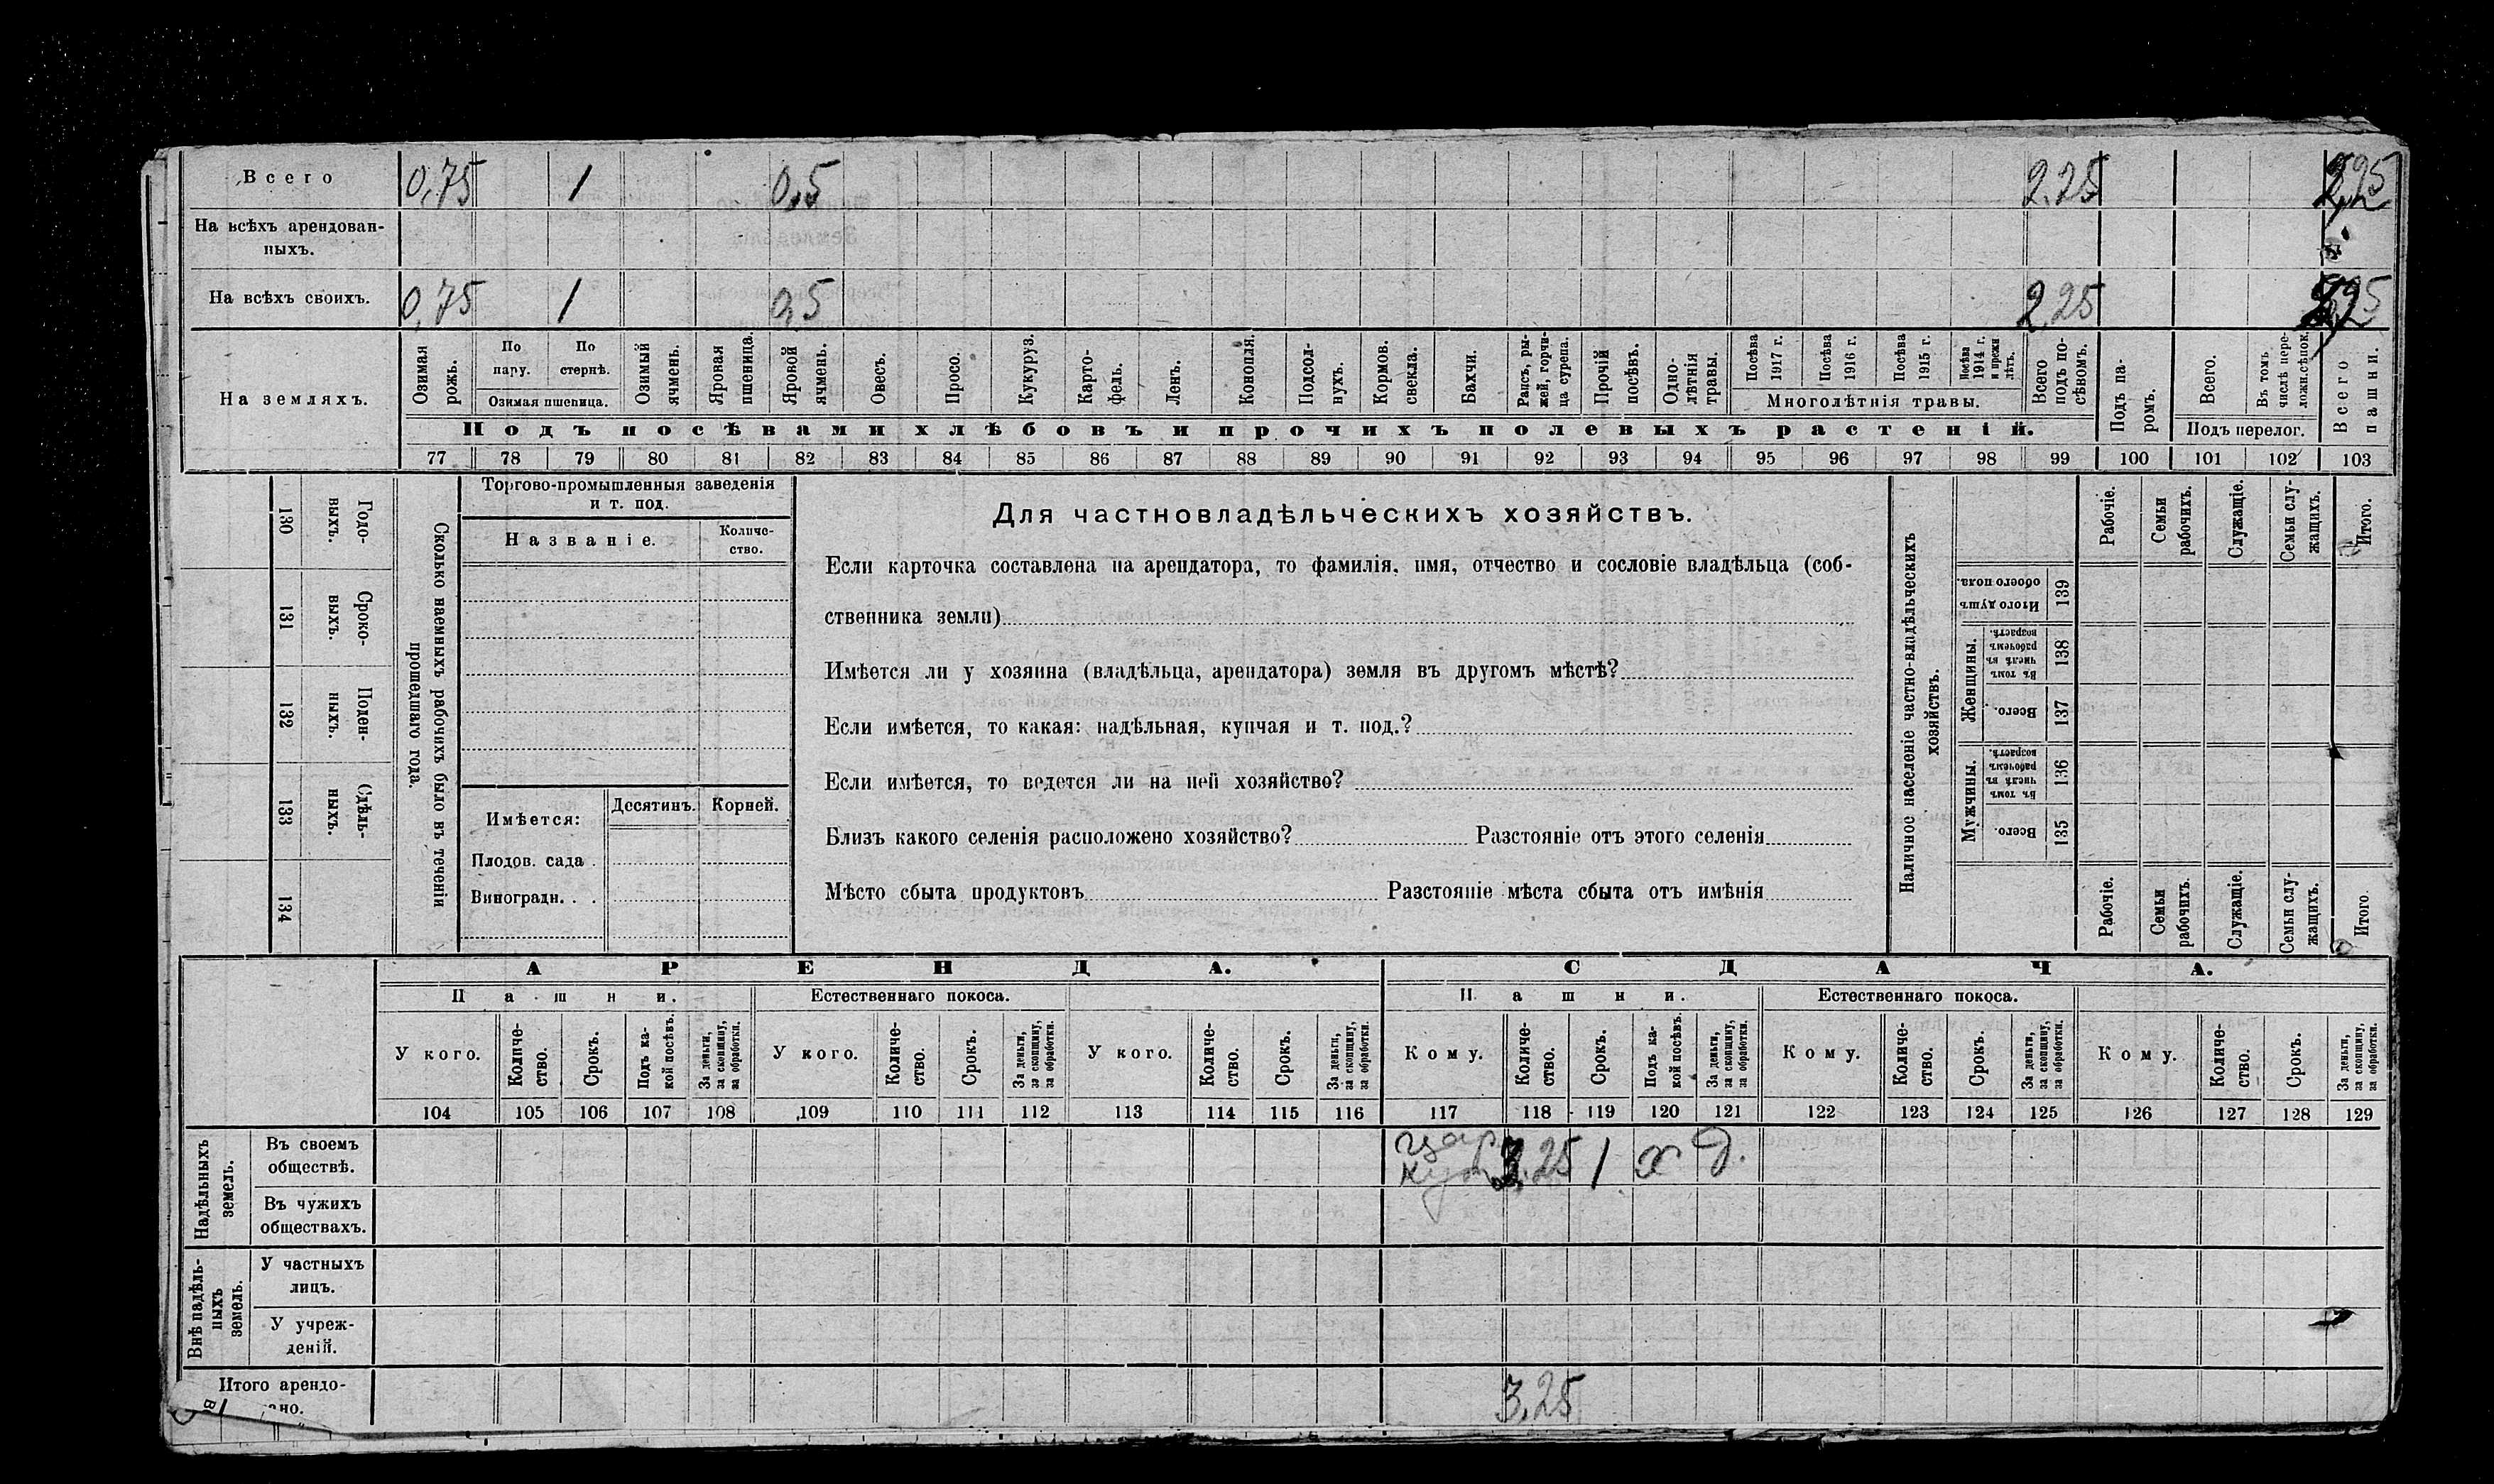 Всего 0,75 1 0,5 2.25
На всѣхъ арендован-
ныхъ.
На всѣхъ своихъ. 0,75 1 0,5 2,25
На земляхъ.
Озимая рожь.
По пару.
По стернѣ.
Озимая пшеница.
Озимый ячмень.
Яровая пшеница.
Яровой ячмень.
Овесъ.
Просо.
Кукуруз.
Карто-
фель.
Ленъ.
Конопля.
Подсол-
нухъ.
Кормов.
свекла.
Бахчи.
Рапсъ, ры-
жей, горчи-
ца сурепа.
Прочій
посѣвъ.
Одно-
лѣтнія
травы.
Посѣва
1917 г.
Посѣва
1916 г.
Посѣва
1915 г.
Посѣва
1914 г.
и прежн
лѣтъ.
Многолѣтнія травы.
Всего
подъ по-
сѣвомъ.
Подъ па-
ромъ.
Всего.
Въ томъ
числѣ пере-
ложн.сѣнок.
Подъ перелог.
Всего
пашни.
Подъ посѣвами хлѣбовъ и прочихъ полевыхъ растеній.
77 78 79 80 81 82 83 84 85 86 87 88 89 90 91 92 93 94 95 96 97 98 99 100 101 102 103
130 Годо-
выхъ.
131 Сроко-
выхъ.
132 Поден-
ныхъ.
133 Сдѣль-
ныхъ.
134
Сколько наемныхъ рабочихъ было въ теченіи
прошедшаго года.
Торгово-промышленныя заведенія
и т. под.
Названіе.
Количе-
ство.
Имѣется:
Десятинъ.
Корней.
Плодов. сада .
Виноградн. . .
Для частновладѣльческихъ хозяйствъ.
Если карточка составлена на арендатора, то фамилія, имя, отчество и сословіе владѣльца (соб-
ственника земли)
Имѣется ли у хозяина (владѣльца, арендатора) земля въ другомъ мѣстѣ?
Если имѣется, то какая: надѣльная, купчая и т. под.?
Если имѣется, то ведется ли на ней хозяйство?
Близъ какого селенія расположено хозяйство? Разстояніе отъ этого селенія
Мѣсто сбыта продуктовъ Разстояніе мѣста сбыта отъ имѣнія
Наличное населеніе частно-владѣльческихъ
хозяйствъ.
Рабочіе.
Семьи
рабочихъ.
Служащіе.
Семьи слу-
жащихъ.
Итого.
Итого душъ
обоего пола.
139
Женщины.
Въ томъ
числѣ въ
рабочемъ
возрастѣ.
138
Всего.
137
Мужчины.
Въ томъ
числѣ въ
рабочемъ
возрастѣ.
136
Всего.
135
Рабочіе.
Семьи
рабочихъ.
Служащіе.
Семьи слу-
жащихъ.
Итого
АРЕНДА. СДАЧА.
Пашни. Естественнаго покоса. Пашни. Естественнаго покоса.
У кого.
Количе-
ство.
Срокъ.
Подъ ка-
кой посѣвъ.
За деньги,
за скопщину,
за обработки.
У кого.
Количе-
ство.
Срокъ.
За деньги,
за скопщину,
за обработки.
У кого.
Количе-
ство.
Срокъ.
За деньги,
за скопщину,
за обработки.
Кому.
Количе-
ство.
Срокъ.
Подъ ка-
кой посѣвъ.
За деньги,
за скопщину,
за обработки.
Кому.
Количе-
ство.
Срокъ.
За деньги,
за скопщину,
за обработки.
Кому.
Количе-
ство.
Срокъ.
За деньги,
за скопщину,
за обработки.
104 105 106 107 108 109 110 111 112 113 114 115 116 117 118 119 120 121 122 123 124 125 126 127 128 129
Надѣльныхъ
земель.
Въ своемъ
обществѣ.
3,25 1 х д.
Въ чужихъ
обществахъ.
Внѣ надѣль-
ныхъ
земель.
У частныхъ
лицъ.
У учреж-
деній.
Итого арендо-
ано.
3,25